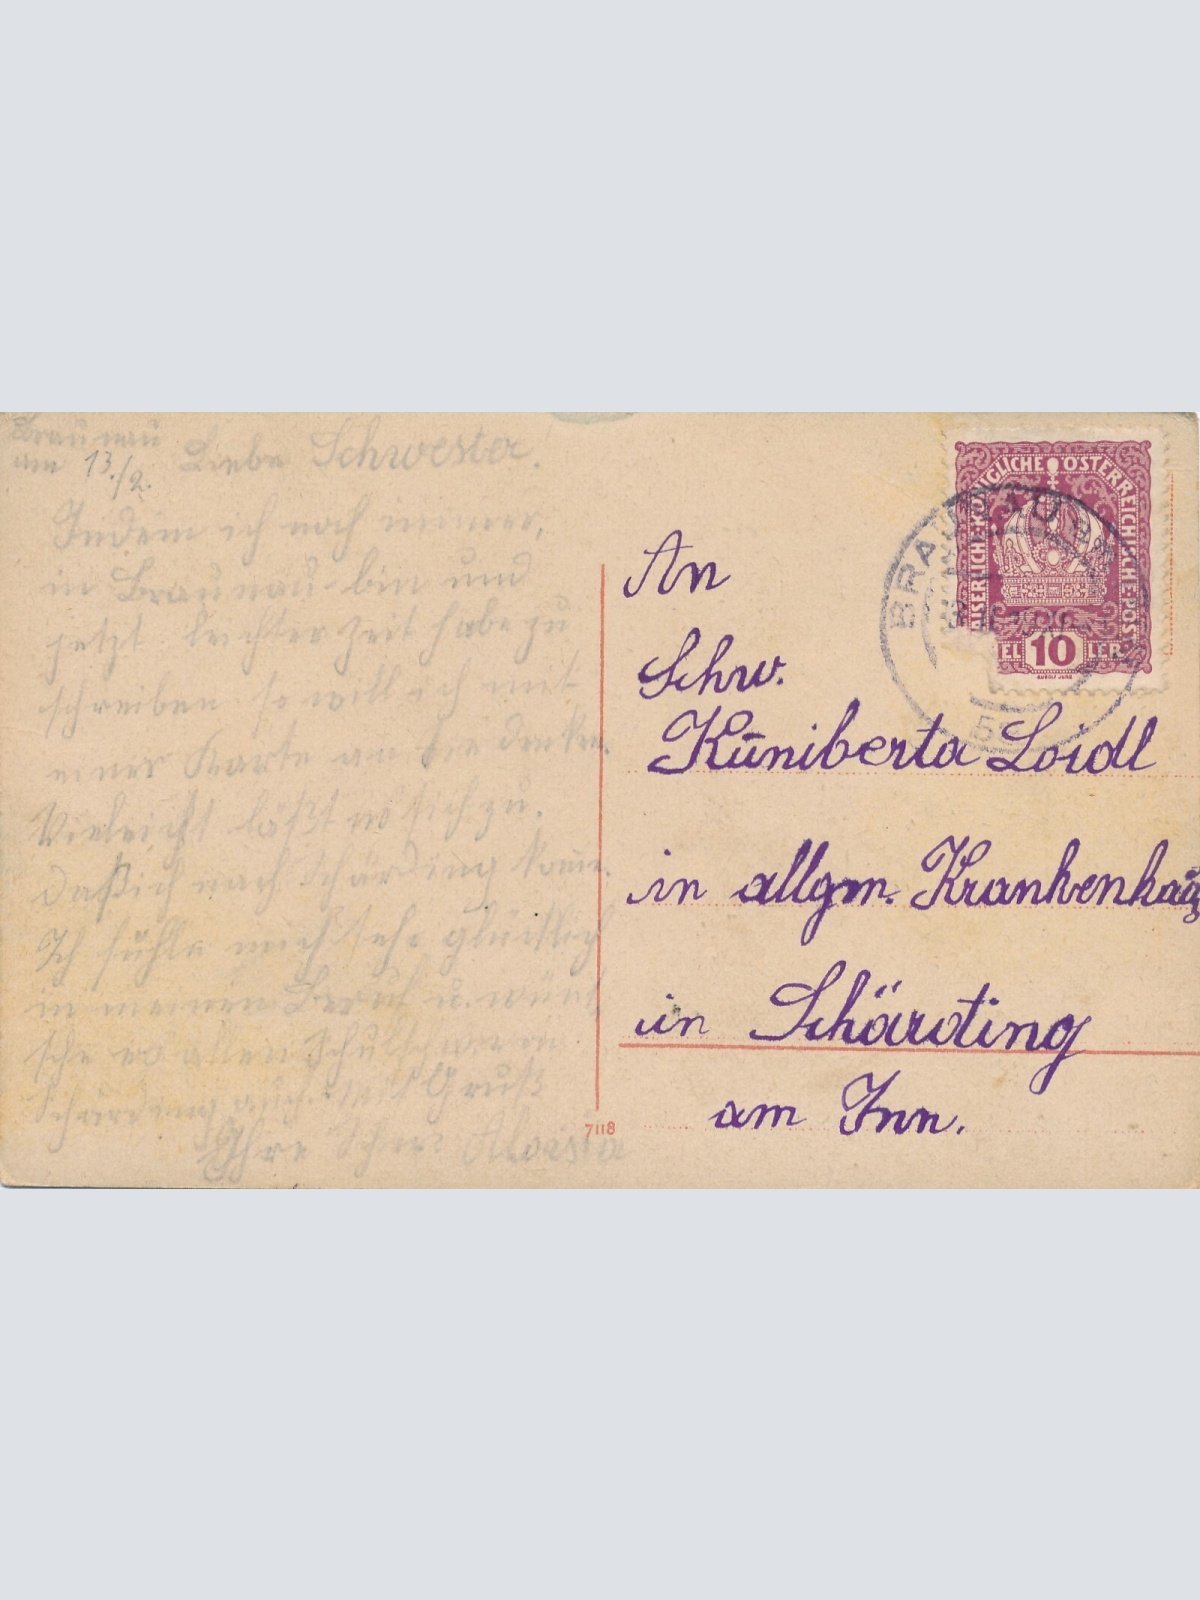 Braunau
am 13./2.
Liebe Schwester!
Indem ich noch immer,
in Braunau bin und
jetzt leichter Zeit habe zu
schreiben. so will ich mit
einer Karte an Sie denken.
Vieleicht läßt es sich zu.
daß ich nach Schärding kome.
Ich fühle mich sehr glücklich
in meinen Beruf u. wünt
sche es den Schu
Schärding auch. mit Gruß
Ihre Schw. Aloisia
KAISERLICHE·KÖNIGLICHE ÖSTERREICHISCHE·POST
10
RUDOLF JUNK
BRAUNAU
An
Schw.
Kuniberta Loidl
in allgm. Krankenhaus
in Schärding
am Inn.
7118